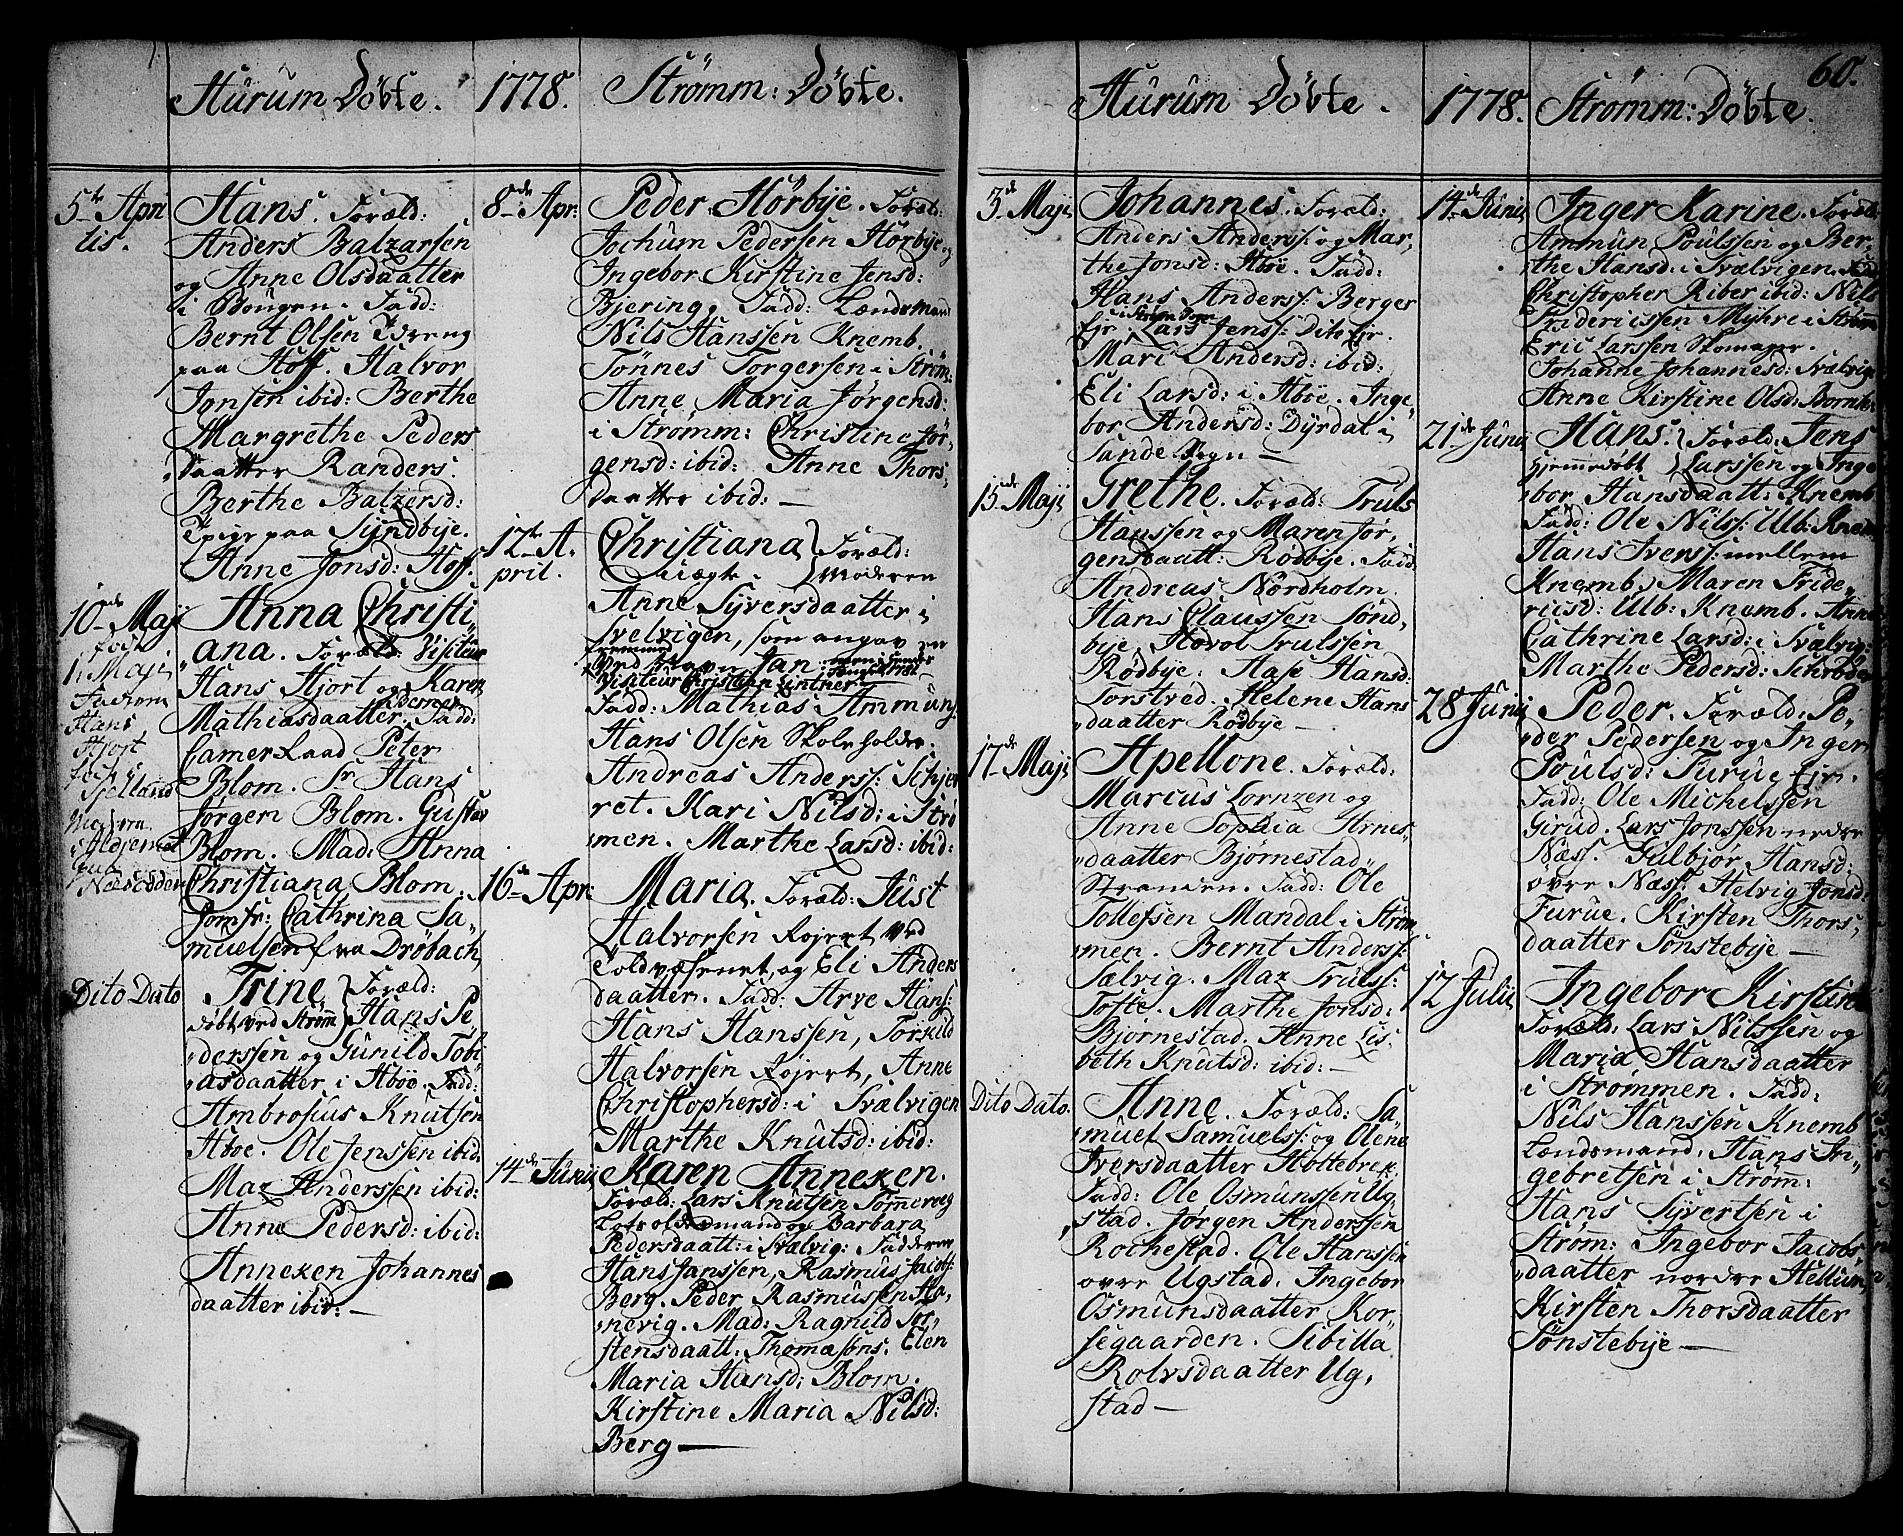 60.
Hurum Döbte. 1778. Strømm: Döbte.
5te Apri
lis.
Hans. Foræld:
Anders Balzarsen
og Anne Olsdaatter
i Bougen. Fadd:
Bernt Olsen Edreng
paa Hoff. Halvor
Jonsen ibid: Berthe
Margrethe Peders
daatter Randers.
Berthe Balzersd:
Epige paa Sundbÿe.
Anne Jonsd: Hoff.
10de Maji
født
1. Maji
Faderen
Hans
Hjort
født i
Sjelland
Moderen
paa
Næsodden
Anna Christi„
„ana. Foræld: Visiteur
Hans Hjort og Karen
Mathiasdaatter. Fadd:
Camer Raad Peter
Blom. Sr Hans
Jørgen Blom. Gustav
Blom. Mad: Anna
Christiana Blom.
Jomfr: Cathrina Sa„
muelsen fra Dröbach,
Dito Dato
Trine. Foræld:
döbt ved Strøm Hans Pe
„derssen og Gunild Tobi
„asdaatter i Aböe. Fadd:
Ambrosius Knutsen
Aböe. Ole Jenssen ibid.
Maz Anderssen ibid:
Anne Pedersd: ibid:
Anneken Johannes
daatter ibid: —
8de Apr:
Peder Hörbÿe. Foræld:
Jochum Pedersen Hörbÿe og
Ingebor Kirstine Jensd:
Bjering. Fadd: Lændsmand
Nils Hanssen Knemb.
Tönnes Torgersen i Strøm:
Anne Maria Jørgensd:
i Strømm: Christine Jør„
gensd: ibid: Anne Thors„
daatter ibid: —
12te A.
pril.
Christiana Foræld:
uægte. Moderen
Anne Syversdaatter i
Svelvigen, som angav en
fremmed
ved Navn Jan
Visiteur Christian Lintner
Fadd: Mathias Ammun,
Hans Olsen Skoleholder.
Andreas Anderss: Schjer
ret. Kari Nilsd: i Strø
men. Marthe Larsd: ibid:
16de Apr:
Maria. Foræld: Just
Halvorsen Rojert ved
Toldvæsenet, og Eli Anders
daatter. Fadd: Arve Hans:
Hans Hanssen, Torkild
Halvorsen Rojert, Anne
Christophersd: i Svælvigen
Marthe Knutsd: ibid:
14de Junii
Karen Anneken.
Foræld: Lars Knutsen Tömmerög
og Barbara
Pedersdaatt: i Svælvig: Fadderne
Hans Janssen, Rasmus Jacobs:
Berg. Peder Rasmussen Ha„
„nevig. Mad: Ragnild Tor„
stensdaatt: Thomæsöns. Elen
Maria Hansd: Blom.
Kirstine Maria Nilsd:
Berg —
Hurum Döbte. 1778. Strømm: Döbte.
3de Maji
Johannes. Foræld:
Anders Anderss: og Mar„
the Jonsd: Aböe. Fadd:
Hans Anderss: Berger
i Strøm Sogn
Eje. Lars Jenss: Dito Eje
Mari Andersd: ibid:
Eli Larsd: i Aböe. Inge„
bor Andersd: Dyrdal i
Sande Sogn —
15de Maji
Grethe. Foræld: Truls
Hanssen og Maren Jør„
gensdaatt: Rödbÿe. Fadd:
Andreas Nordholm.
Hans Claussen Sönd„
bÿe, Hovol Trulssen
Rödbÿe. Aase Hansd:
Torstved. Helene Hans
„daatter Rödbÿe —
17de Maji
Apellone. Foræld:
Marcus Lornzen og
Anne Sophia Arnes„
„daatter Bjørnestad„
Stranden. Fadd: Ole
Tollefsen Mandal i Strøm
„men. Bernt Anderss:
Sælvig. Maz Trulss:
Tofte. Marthe Jonsd:
Bjørnestad. Anne Lis„
beth Knutsd: ibid: —
Dito Dato.
Anne. Foræld: Sa„
muel Samuelss: og Olene
Iversdaatter Hottebrek.
Fadd: Ole Osmunssen Ug„
„stad. Jørgen Anderssen
Rochestad. Ole Hanssen
övre Ugstad. Ingebor
Osmunsdaatter Kor„
segaarden. Sibilla
Rolvsdaatter Ug„
stad —
14de Junii
Inger Karine. Foræld:
Ammun Poulssen og Ber„
the Hansd: i Svælvigen. Fadd
Christopher Riber ibid: Nils
Fridericssen Myhre i Strøm
Eric Larssen Skomager.
Johanne Johannesd: Svælvig:
Anne Kirstine Olsd: Bornho
21de Junii
Hans. Foræld: Jens
hjemmedöbt Larssen og Inge
bor Hansdaatt: Knemb
Fadd: Ole Nilss: Ulb: Knem
Hans Iverss: mellem
Knemb, Maren Fride„
ricsd: Ulb: Knemb. Anne
Cathrine Larsd: i Svælvig:
Marthe Pedersd: Schröder
28 Junii
Peder. Foræld: Pe„
„der Pedersen og Inger
Poulsd: Furue Eje.
Fadd: Ole Michelssen
Girud. Lars Jonssen nedre
Næss. Gulbjør Hansd:
övre Næss. Helvig Jonsd:
Furue. Kirsten Thors„
daatter Sönstebÿe —
12 Julii
Ingebor Kirstine
Foræld: Lars Nilssen og
Maria Hansdaatter
i Strømmen. Fadd:
Nils Hanssen Knemb
Lændsmand, Hans In„
gebretsen i Strøm:
Hans Syvertsen i
Strøm: Ingebor Jacobs
„daatter nordre Hellum,
Kirsten Thorsdaatter
Sönstebÿe —